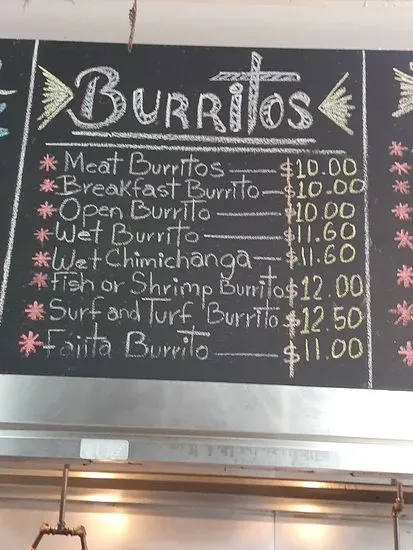 BURRITOS
* Meat Burritos — $10.00
* Breakfast Burrito — $10.00
* Open Burrito — $10.00
* Wet Burrito — $11.60
* Wet Chimichanga — $11.60
* Fish or Shrimp Burritos $12.00
* Surf and Turf Burrito $12.50
* Fajita Burrito — $11.00